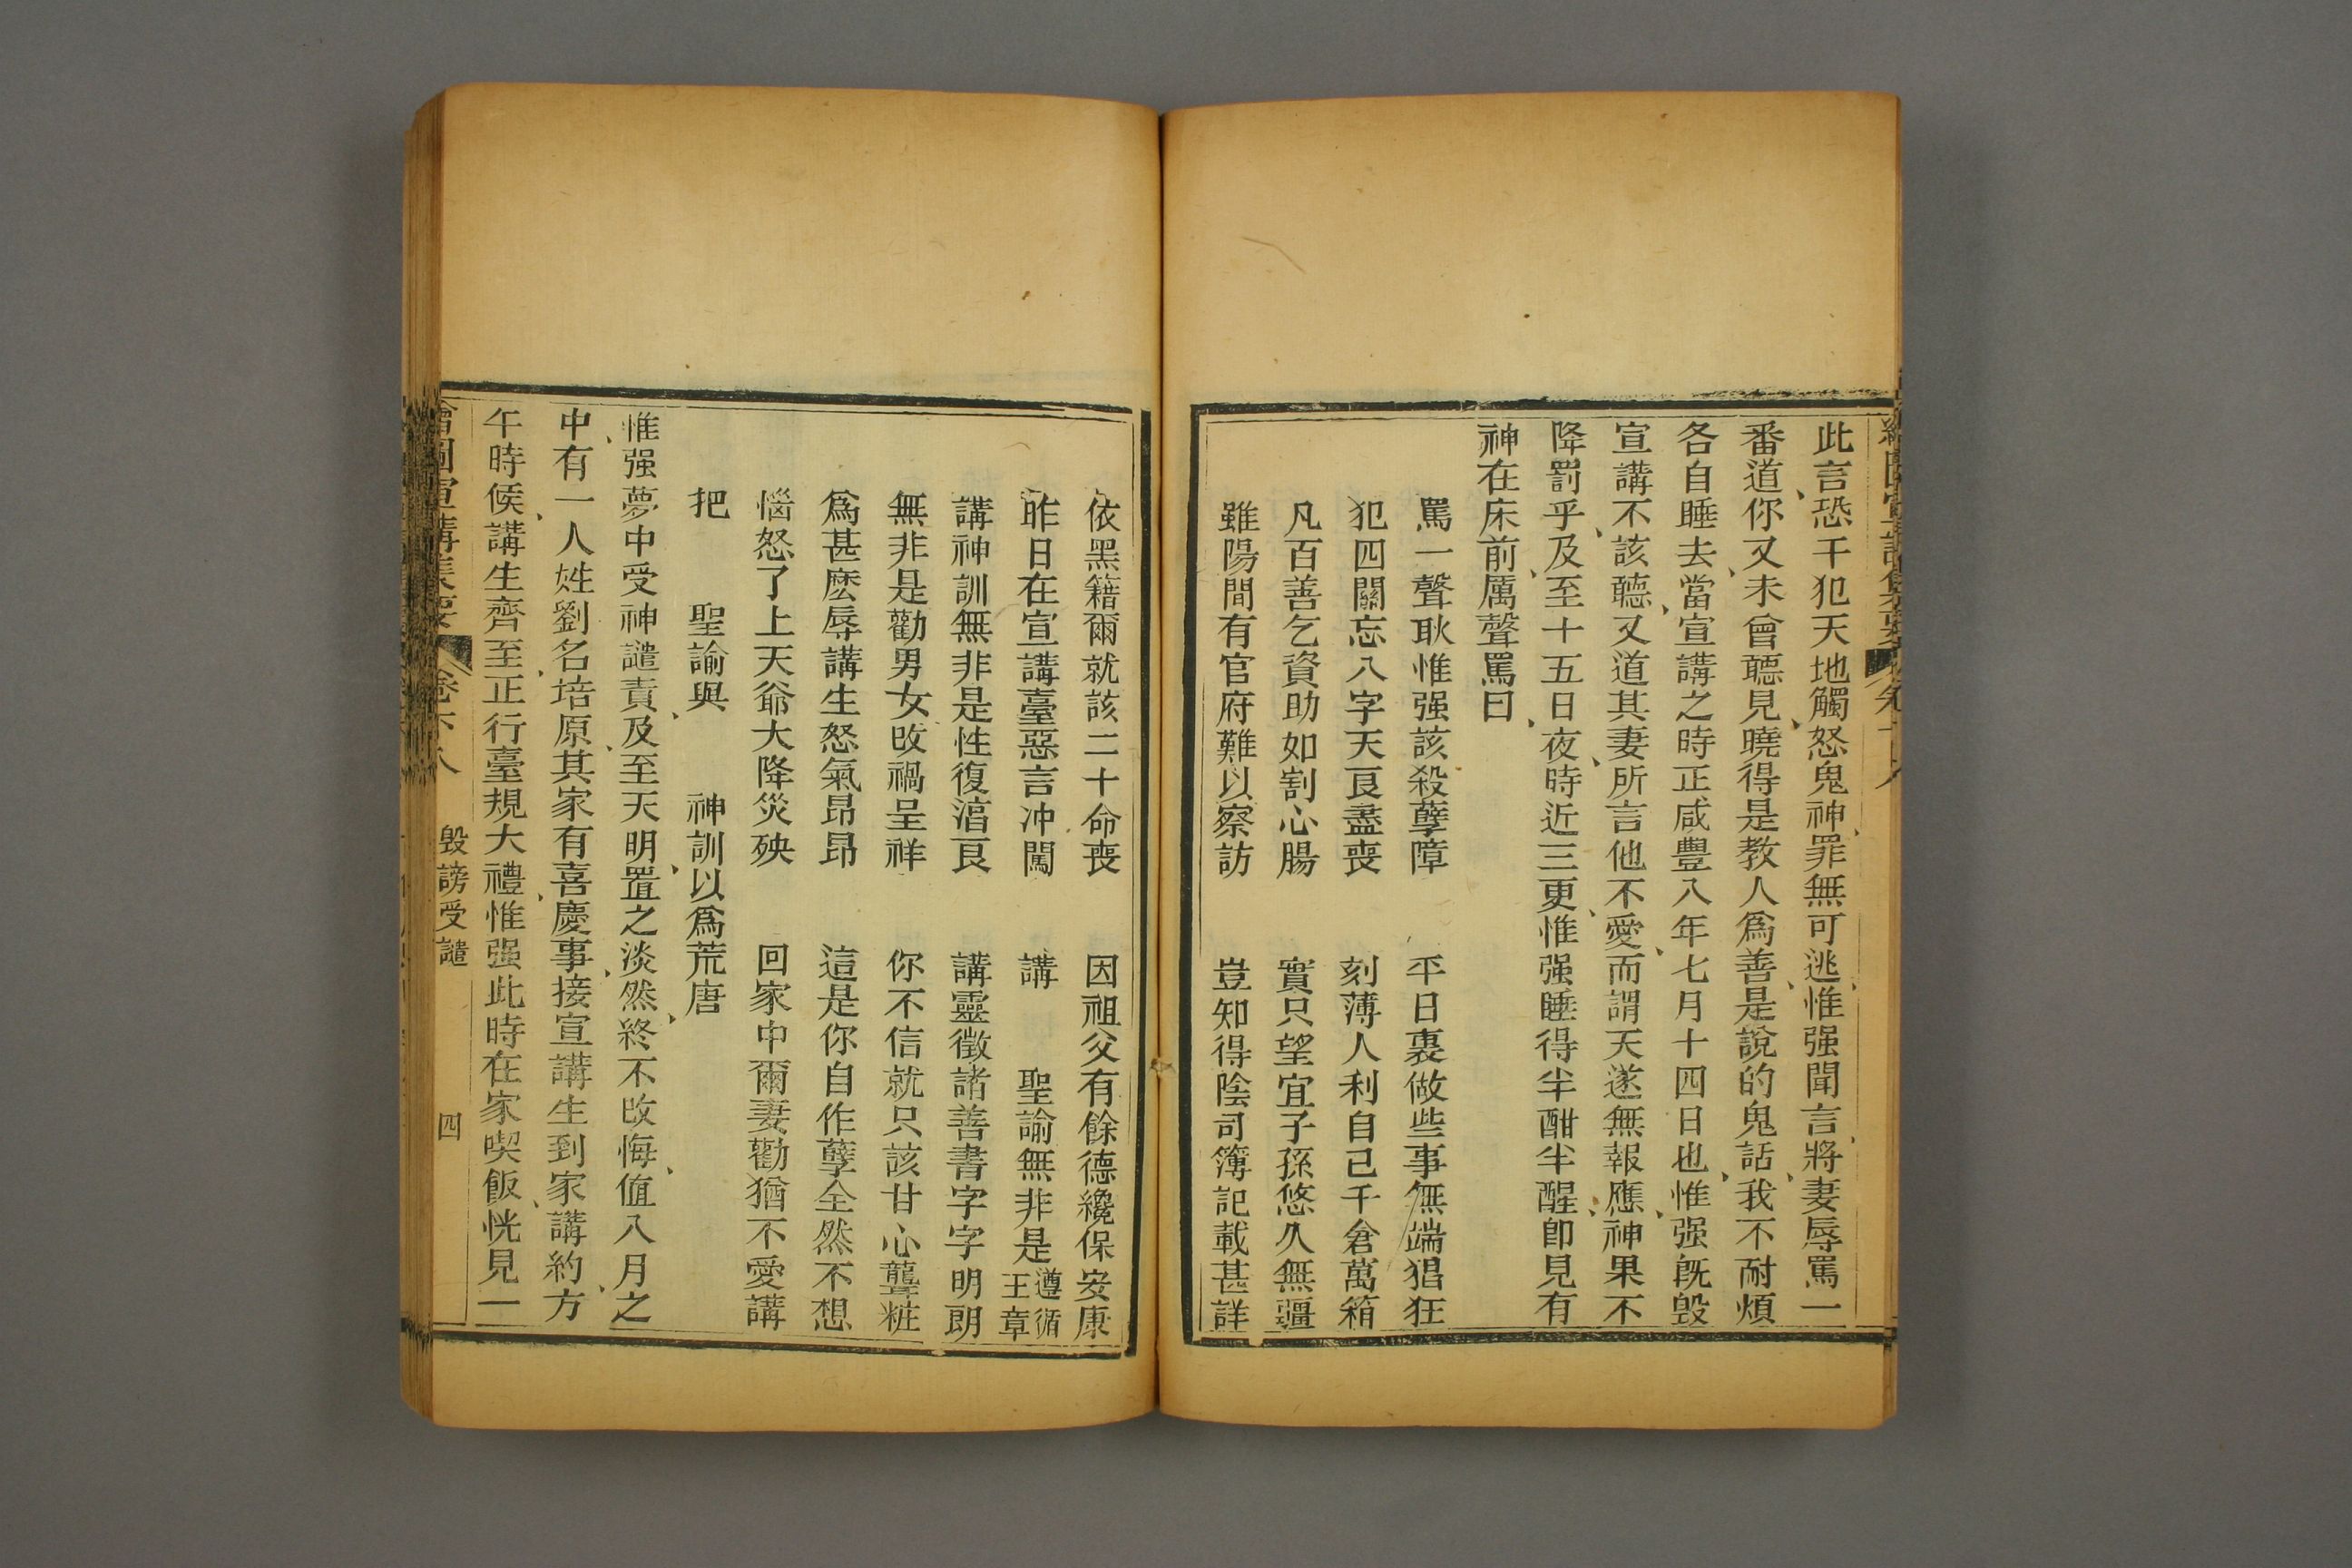 此言恐干犯天地觸怒鬼神、罪無可逃、惟强聞言、將妻辱罵一
番道、你又未曾聽見、曉得是教人爲善、是說的鬼話、我不耐煩
各自睡去、當宣講之時正咸豐八年七月十四日也、惟强旣毀
宣講不該聽、又道其妻所言他不愛、而謂天遂無報應、神果不
降罰乎、及至十五日夜、時近三更、惟强睡得半酣半醒、卽見有
神在床前、厲聲罵曰、
罵一聲耿惟强該殺孽障　平日裏做些事無端猖狂
犯四關忘八字天良盡喪　刻薄人利自己千倉萬箱
凡百善乞資助如割心腸　實只望宜子孫悠久無疆
雖陽間有官府難以察訪　豈知得陰司簿記載甚詳
依黑籍爾就該二十命喪　因祖父有餘德纔保安康
昨日在宣講臺惡言冲闖　講　聖諭無非是遵循王章
講神訓無非是性復湻良　講靈徵諸善書字字明朗
無非是勸男女改禍呈祥　你不信就只該甘心聾粧
爲甚麽辱講生怒氣昂昂　這是你自作孽全然不想
惱怒了上天爺大降災殃　回家中爾妻勸猶不愛講
把　聖諭與　神訓以爲荒唐
惟强夢中受神譴責、及至天明、置之淡然、終不改悔、值八月之
中、有一人姓劉名培原、其家有喜慶事、接宣講生到家講約、方
午時候、講生齊至、正行臺規大禮、惟强此時在家喫飯、恍見一
繪圖宣講集要　卷下八　毀謗受譴　四